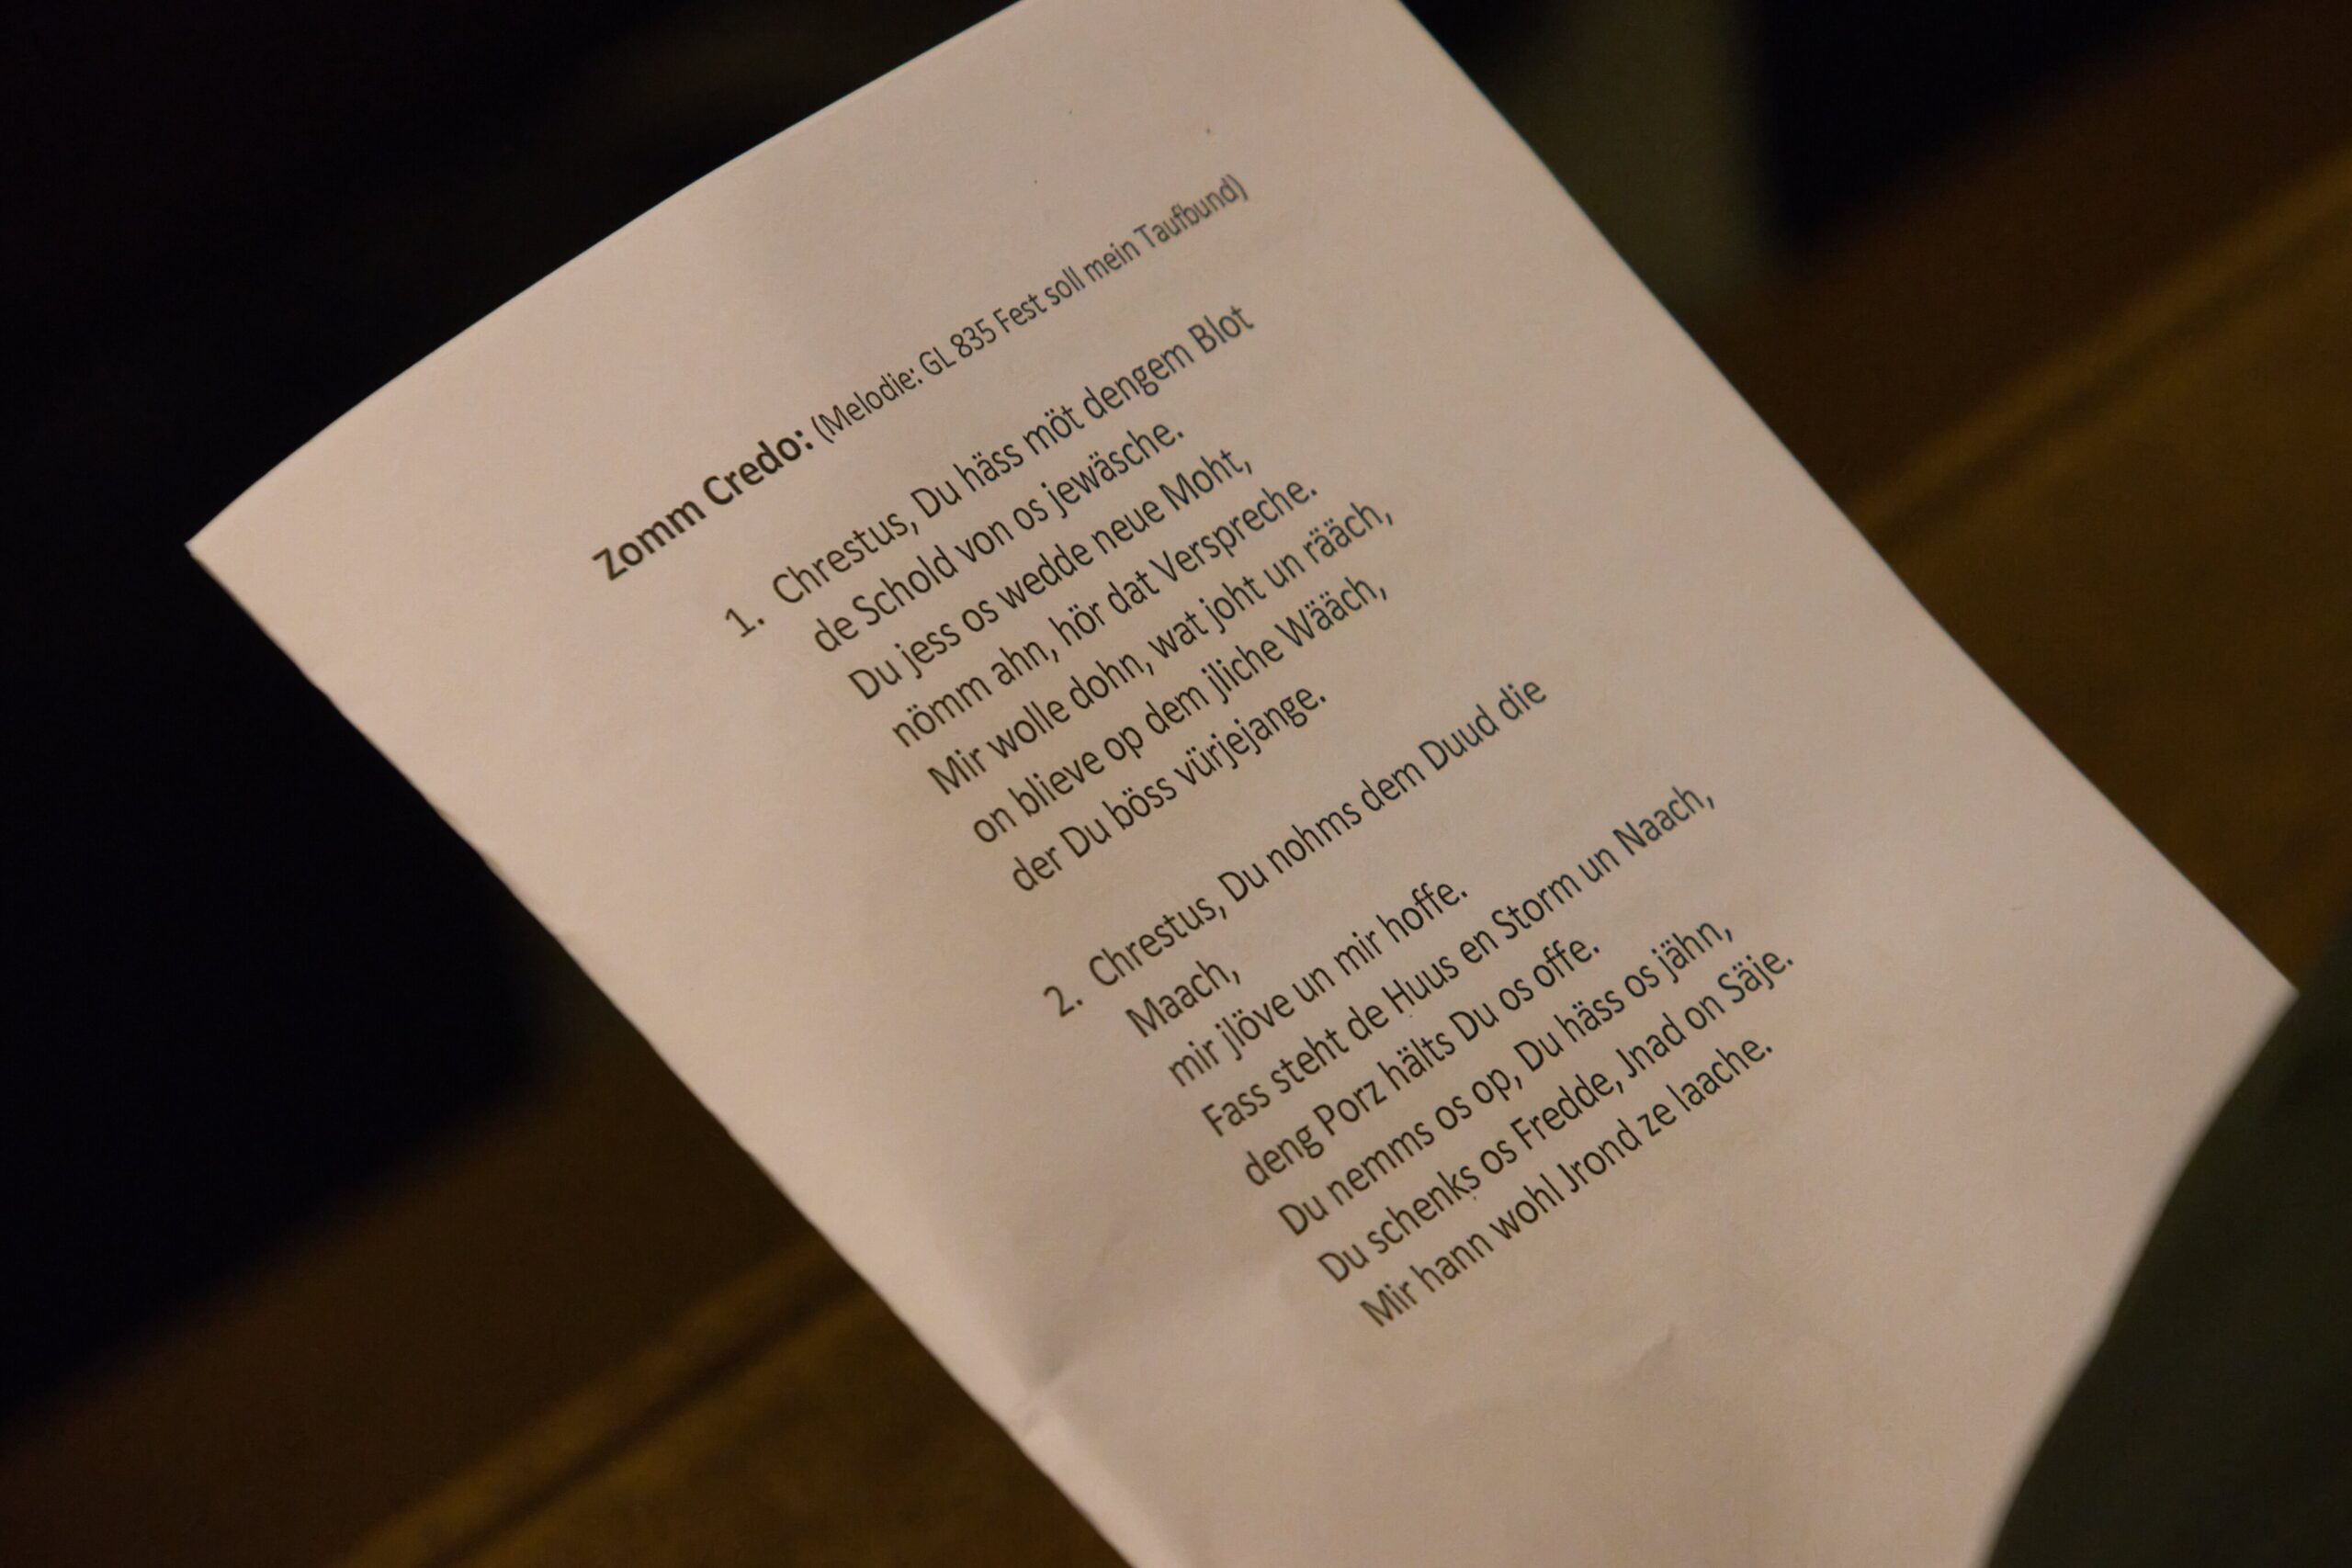 Zomm Credo: (Melodie: GL 835 Fest soll mein Taufbund)
1. Chrestus, Du häss möt dengem Blot
de Schold von os jewäsche.
Du jess os wedde neue Moht,
nömm ahn, hör dat Verspreche.
Mir wolle dohn, wat joht un rääch,
on blieve op dem jliche Wääch,
der Du böss vürjejange.
2. Chrestus, Du nohms dem Duud die
Maach,
mir jlöve un mir hoffe.
Fass steht de Huus en Storm un Naach,
deng Porz hälts Du os offe.
Du nemms os op, Du häss os jähn,
Du schenks os Fredde, Jnad on Säje.
Mir hann wohl Jrond ze laache.